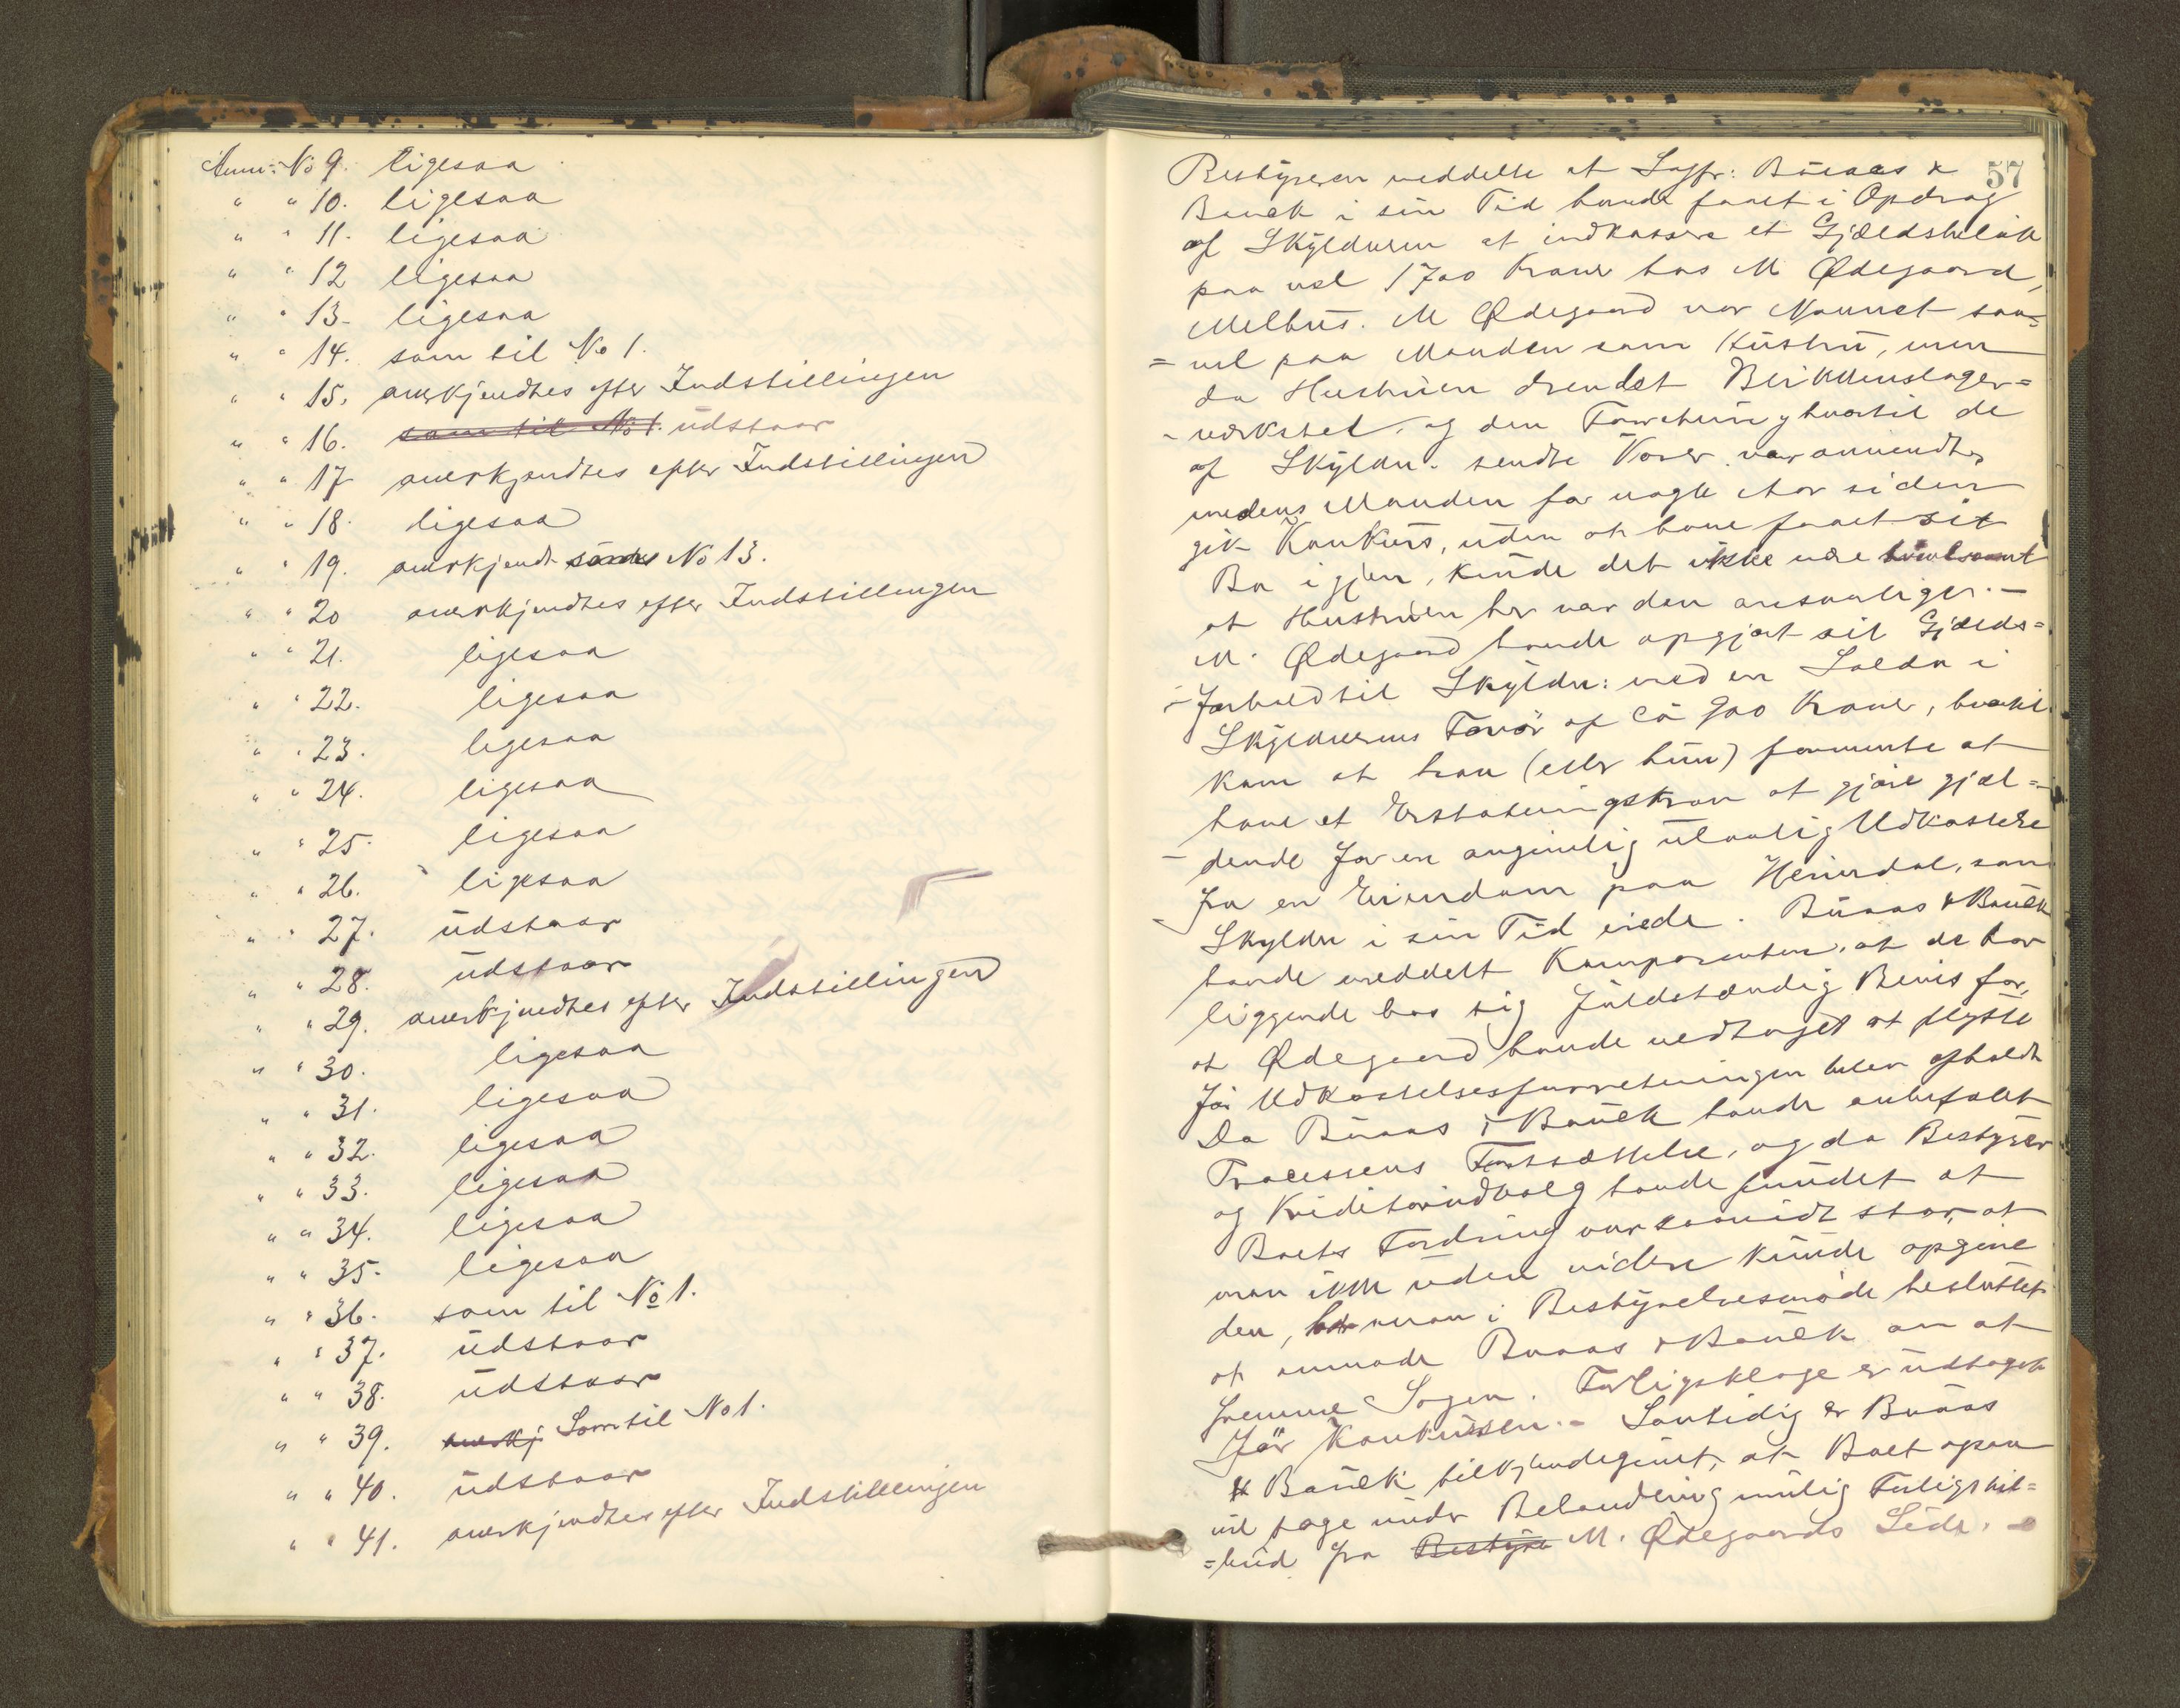 Anm: No 9. ligesaa
" " 10. ligesaa
" " 11. ligesaa
" " 12 ligesaa
" " 13- ligesaa
" " 14. som til No 1.
" " 15. anerkjendtes efter Indstillingen
" " 16. som til No 1. udstaar
" " 17 anerkjendtes efter Indstillingen
" " 18. ligesaa
" " 19. anerkjendt No 13.
" " 20 anerkjendtes efter Indstillingen
" " 21. ligesaa
" " 22. ligesaa
" " 23. ligesaa
" " 24. ligesaa
" " 25. ligesaa
" " 26. ligesaa
" " 27. udstaar
" " 28. udstaar
" " 29. anerkjendtes efter Indstillingen
" " 30. ligesaa
" " 31. ligesaa
" " 32. ligesaa
" " 33. ligesaa
" " 34. ligesaa
" " 35. ligesaa
" " 36. som til No 1.
" " 37. udstaar
" " 38. udstaar
" " 39. anerkj Som til No 1.
" " 40. udstaar
" " 41. anerkjendtes efter Indstillingen
57
Bestyreren meddelte at Sagfr: Buaas &
Bauck i sin Tid havde faaet i Opdrag
af Skyldneren at indkassere et Gjældsbeløb
paa vel 1700 Kroner hos M Ødegaard,
Melhus. M Ødegaard var Navnet saa=
=vel paa Manden som Hustru, men
da Hustruen drev det
=værksted, og den Forretning hvortil de
af Skyldn. sendte Varer var anvendt,
medens Manden for nogle Aar siden
gik Konkurs, uden at have faaet sit
Bo igjen, kunde det ikke være tvivlsomt
at Hustruen her var den ansvarlige. -
M. Ødegaard havde opgjort sit Gjælds=
=forhold til Skyldn: med en Saldo i
Skyldnerens Favør af Ca 900 Kroner, hvortil
kom at han (eller hun) formente at
have et Erstatningskrav at gjøre gjæl=
=dende for en angivelig ulovlig Udkastelse
fra en Eiendom paa Heimdal, som
Skyldn i sin Tid eiede. Buaas & Bauck
havde meddelt Komparenten, at de har
liggende hos sig fuldstændig Bevis for,
at Ødegaard havde vedtaget at flytte
før Udkastelsesforretningen blev afholdt
Da Buaas & Bauck havde anbefalet
Processens Fortsættelse, og da Bestyrer
og Kreditorudvalg havde fundet at
Boets Fordring var saavidt stor, at
man ikke uden videre kunde opgive
den, har man i Bestyrelsesmøde besluttet
at anmode Buaas & Bauck om at
fremme Sagen. Forligsklage er udtaget
før Konkursen.- Samtidig er Buaas
& Bauck tilkjendegivet, at Boet ogsaa
vil tage under Behandling mulig Forligstil=
=bud fra Bestyre M. Ødegaards Side. -